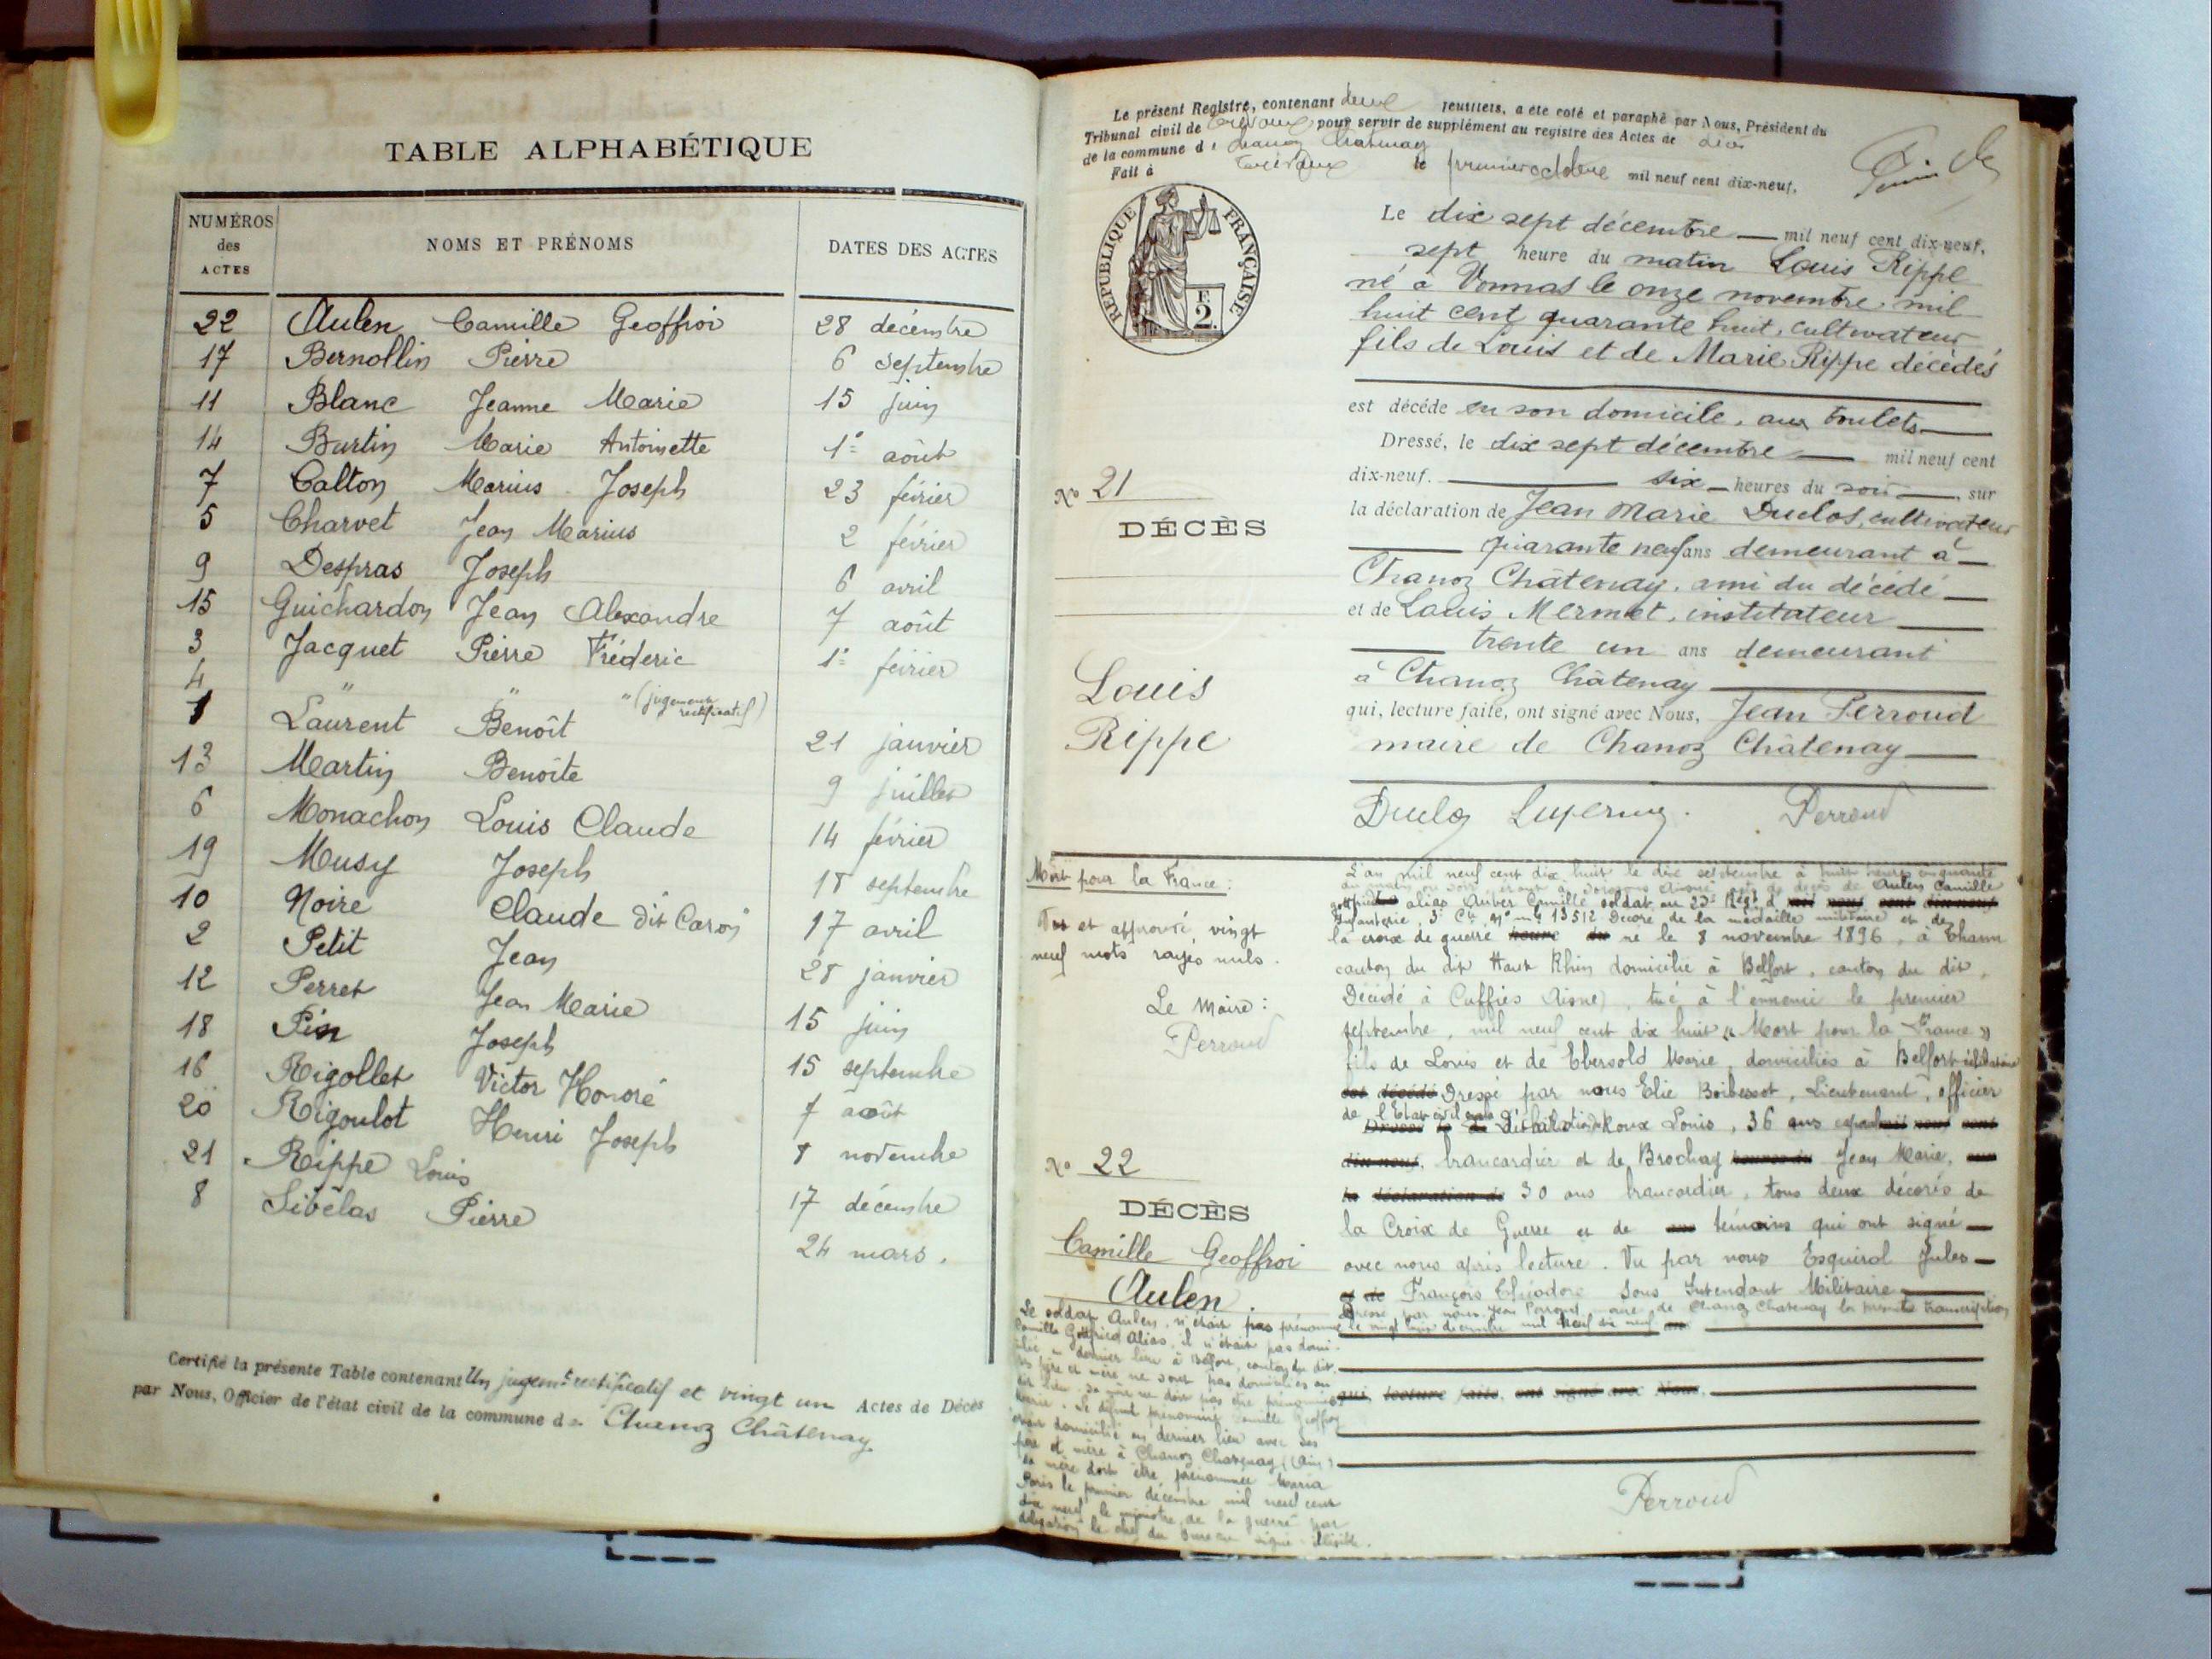 TABLE ALPHABÉTIQUE
NUMÉROS des ACTES
NOMS ET PRÉNOMS
DATES DES ACTES
22 Aulen Camille Geoffroi 28 décembre
17 Bernollin Pierre 6 septembre
11 Blanc Jeanne Marie 15 juin
14 Burtin Marie Antoinette 1er août
7 Calton Marius Joseph 23 février
5 Charvet Jean Marius 2 février
9 Despras Joseph 6 avril
15 Guichardon Jean Alexandre 7 août
3 Jacquet Pierre Fréderic 1er février
4 " " " (jugement rectificatif)
1 Laurent Benoît 21 janvier
13 Martin Benoîte 9 juillet
6 Monachon Louis Claude 14 février
19 Musy Joseph 18 septembre
10 Noire Claude dit Caron 17 avril
2 Petit Jean 28 janvier
12 Perret Jean Marie 15 juin
18 Pin Joseph 15 septembre
16 Rigollet Victor Honoré 7 août
20 Rigoulot Henri Joseph 8 novembre
21 Rippe Louis 17 décembre
8 Sibélas Pierre 24 mars.
Certifié la présente Table contenant Un jugemt rectificatif et vingt un Actes de Décès
par Nous, Officier de l'état civil de la commune de Chanoz Châtenay
Le présent Registre, contenant deux feuillets, a été coté et paraphé par Nous, Président du
Tribunal civil de Trévoux pour servir de supplément au registre des Actes de décès
de la commune de Chanoz Chatenay
Fait à Trévoux le premier octobre mil neuf cent dix-neuf.
RÉPUBLIQUE FRANÇAISE
F.
2.
Le dix sept décembre mil neuf cent dix-neuf,
sept heure du matin Louis Rippe
né à Vonnas le onze novembre mil
huit cent quarante huit, cultivateur
fils de Louis et de Marie Rippe décédés
est décédé en son domicile, aux
Dressé, le dix sept décembre mil neuf cent
dix-neuf. six heures du soir, sur
la déclaration de Jean Marie Duclos, cultivateur
quarante neuf ans demeurant à
Chanoz Châtenay, ami du décédé
et de Louis Mermet, instituteur
trente un ans demeurant
à Chanoz Châtenay
qui, lecture faite, ont signé avec Nous, Jean Perroud
maire de Chanoz Châtenay
Duclos Perroud
No 21
DÉCÈS
Louis
Rippe
Mort pour la France :
Vu et approuvé vingt
neuf mots rayés nuls.
Le Maire :
Perroud
No 22
DÉCÈS
Camille Geoffroi
Aulen.
L'an mil neuf cent dix huit le dix septembre à huit heures cinquante
acte de décès de Aulen Camille
alias Auber Camille soldat au 23e Régt d'
Infanterie, 3e Cie, No mle 13512 Décoré de la médaille militaire et de
la croix de guerre né le 8 novembre 1896, à Thann
canton du dit Haut Rhin domicilié à Belfort, canton du dit,
Décédé à Cuffies (Aisne), tué à l'ennemi le premier
septembre, mil neuf cent dix huit « Mort pour la France »
fils de Louis et de Ebersold Marie, domiciliés à Belfort
est décédé Dressé par nous Elie Boibessot, Lieutenant, officier
de l'Etat civil Roux Louis, 36 ans
dix-neuf. brancardier et de Brochay Jean Marie,
la déclaration de 30 ans brancardier, tous deux décorés de
la Croix de Guerre et de témoins qui ont signé
avec nous après lecture. Vu par nous Esquirol Jules
et de François Théodore Sous Intendant Militaire
Dressé par nous Jean Perroud maire de Chanoz Chatenay la présente transcription
le vingt huit décembre mil neuf dix neuf
qui, lecture faite, ont signé avec Nous,
Perroud
Le soldat Aulen n'était pas prénommé
Camille Gottfried Alias, il n'était pas domi-
cilié en dernier lieu à Belfort, canton du dit.
ses père et mère ne sont pas domiciliés au
dit lieu. Sa mère ne doit pas être prénommée
Marie. Le défunt prénommé Camille Geoffroy
était domicilié en dernier lieu avec ses
père et mère à Chanoz Chatenay (Ain)
sa mère doit être prénommée Maria
Paris le premier décembre mil neuf cent
dix neuf le ministre de la guerre par
délégation le chef du bureau signé : illisible.